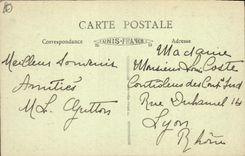 CARTE POSTALE
Correspondance
UNIS-FRANCE
Adresse
Meilleur Souvenir
Amitiés
ML. Gutton
Madame
Monsieur Coste
Controleur des Cont.
Rue Duhamel 14
Lyon
Rhône